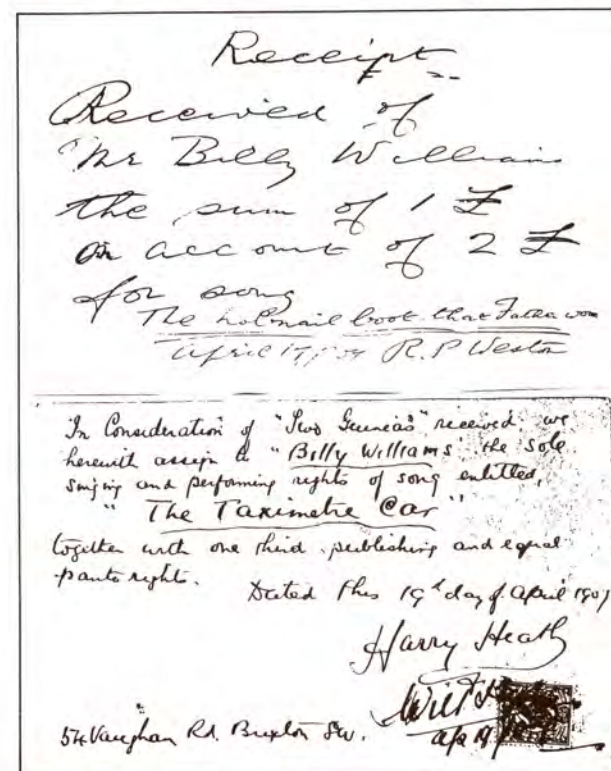 Receipt
Received of
Mr Billy Williams
the sum of 1 £
on account of 2 £
for song
The hobnail boot that Father wore
April 17/09 R. P Weston
In Consideration of "Two Guineas" received, we
herewith assign to "Billy Williams" the sole
singing and performing rights of song entitled,
"The Taximetre Car"
together with one third publishing and equal
panto rights.
Dated this 19th day of April 1907
Harry Heath
Will
54 Vaughan Rd. Brixton SW.